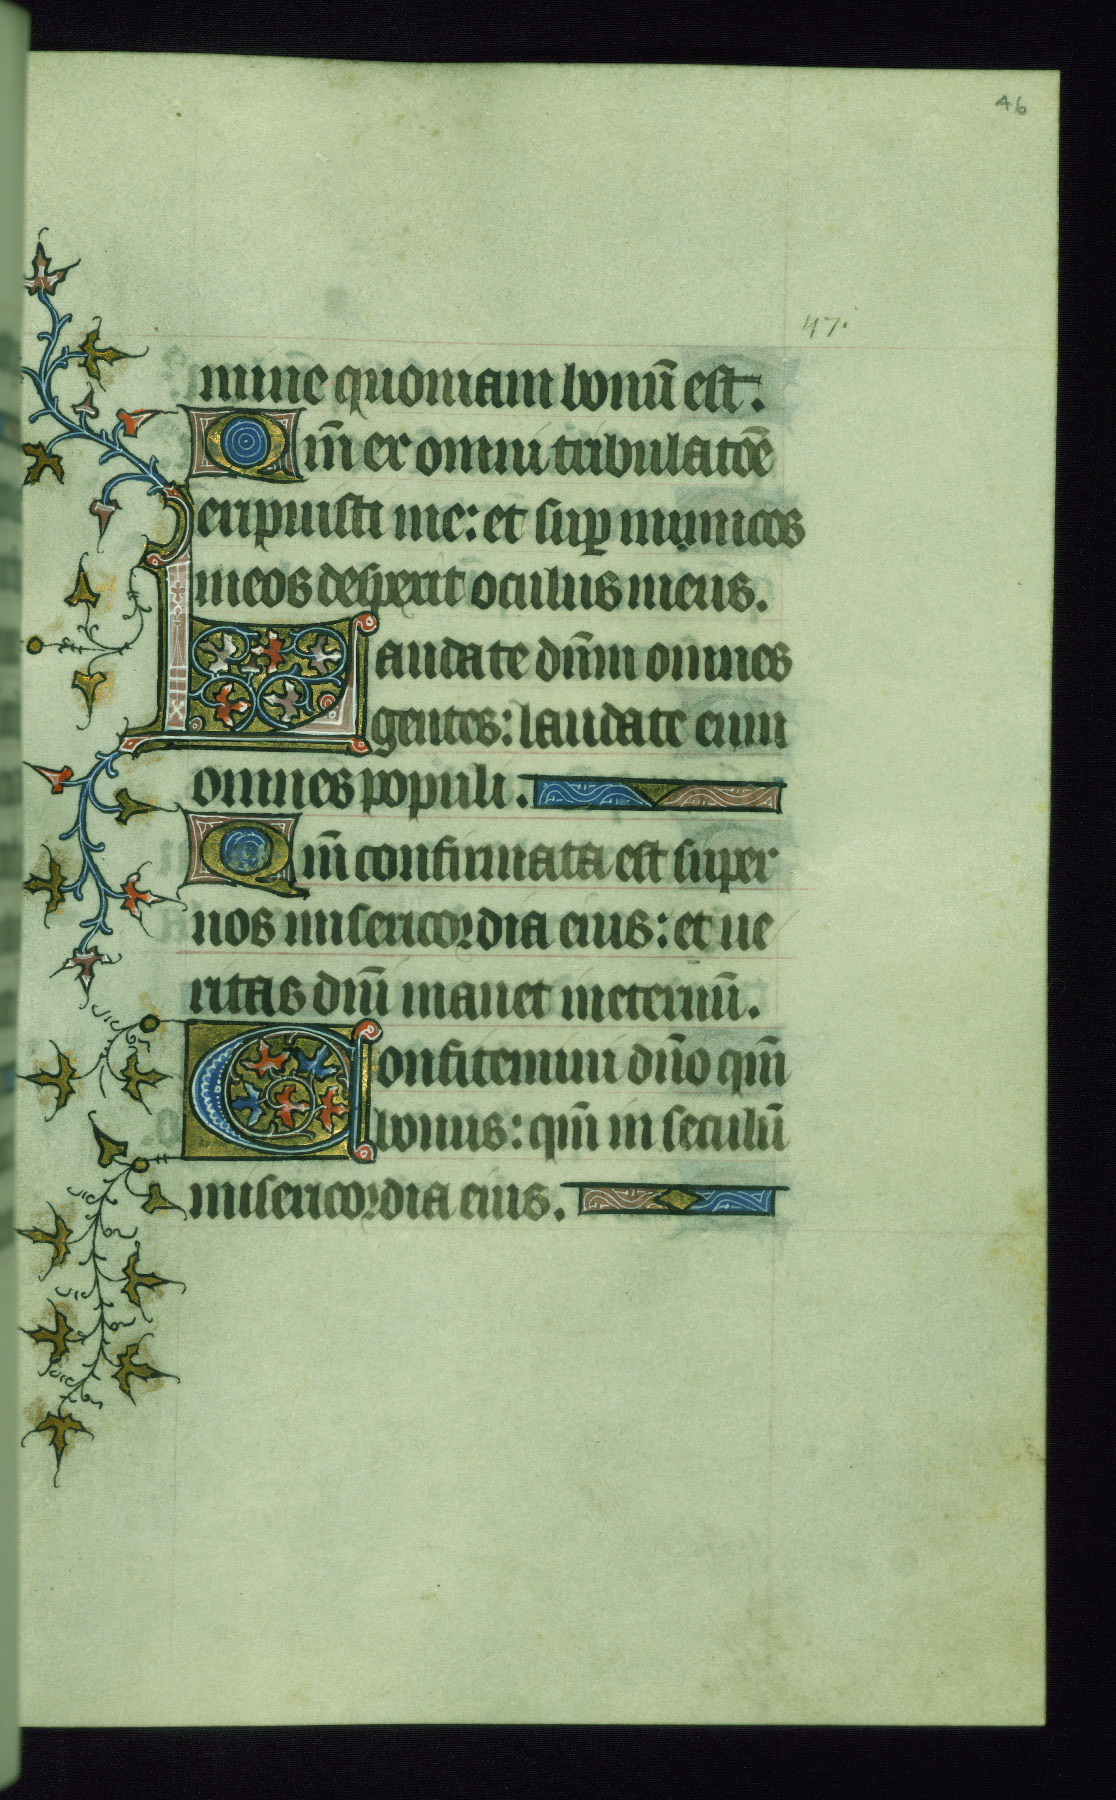 46
47.
mine quoniam bonū est.
Qm̄ ex omni tribulatōē
eripuisti me: et suꝑ inimicos
meos despexit oculus meus.
Laudate dn̄m omnes
gentes: laudate eum
omnes populi.
Qm̄ confirmata est super
nos misericordia eius: et ue
ritas dn̄i manet ineternū.
Confitemini dn̄o qm̄
bonus: qm̄ in seculū
misericordia eius.